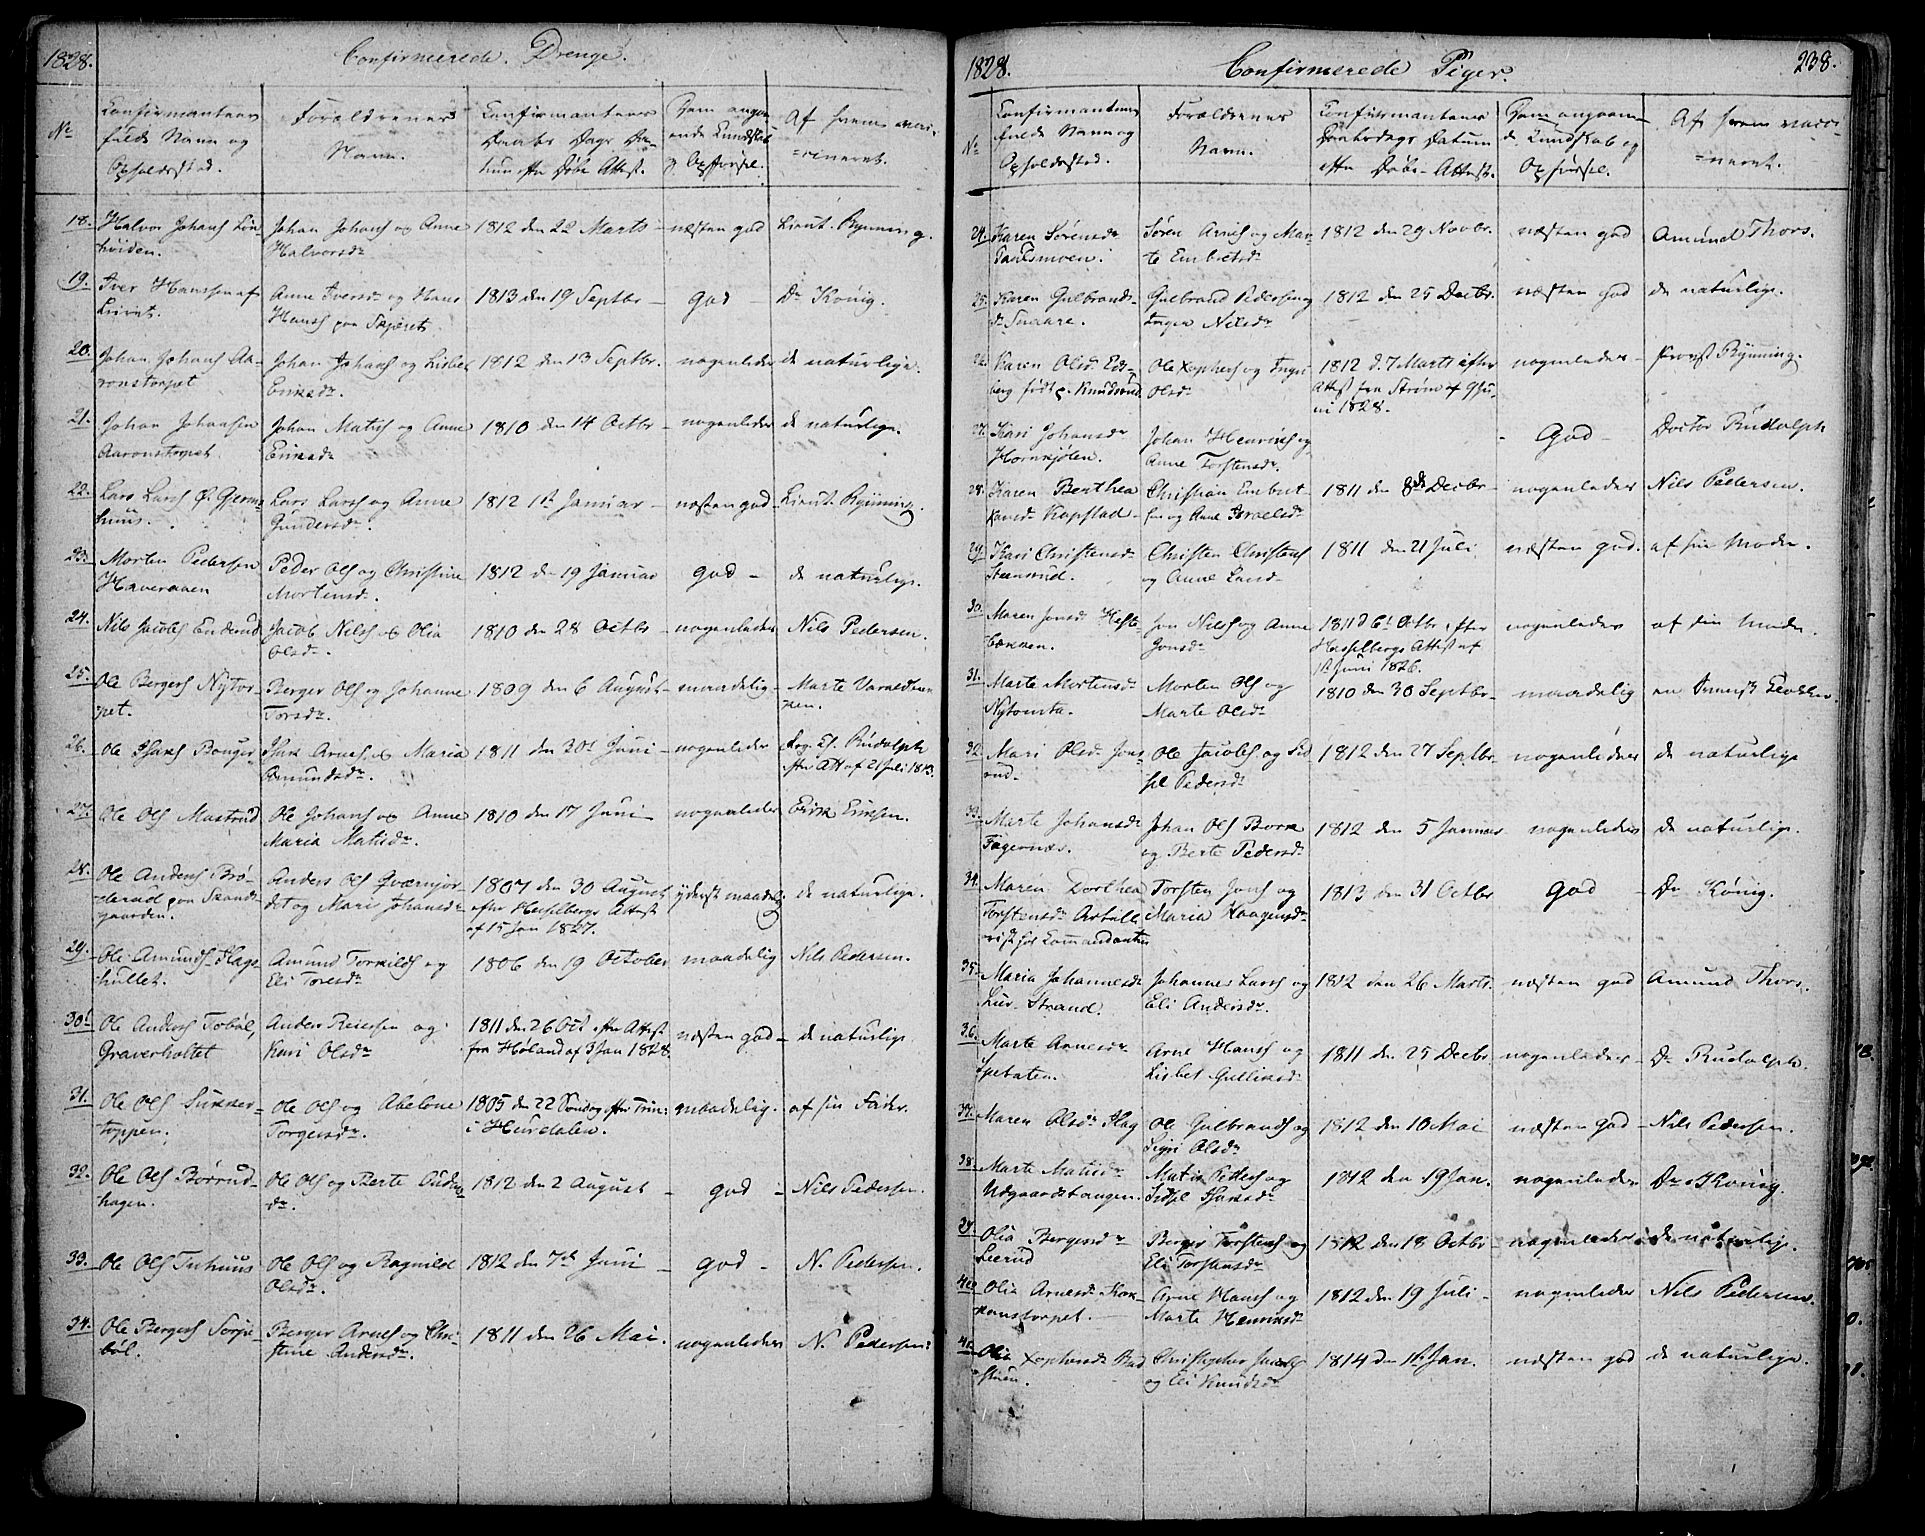 1828.
Confirmerede Drenge.
No
Confirmanternes
fulde Navn og
Opholdssted.
Forældrenes
Navn.
Confirmanternes
Daabs Dags Da-
tum efter Døbe Attest.
Dom angaa-
ende Kundskab
og Opførsel.
Af hvem vacci-
=cineret.
18. Halvor Johans
Johan Johans og Anne
Halvorsdr
1812 den 22 Marts
næsten god
Lieut. Rynning.
19. Iver Hanssen af
Anne Iversdr og Hans
Hans paa Skjæret
1813 den 19 Septbr
God
Dr König.
20. Johan Johans Aa-
ronstorpet
Johan Johans og Lisbet
Eriksdr.
1812 den 13 Septbr.
nogenledes
de naturlige.
21. Johan Johansen
Aaronstorpet
Johan Matis og Anne
Eriksdr
1810 den 14 Octbr
nogenledes
de naturlige.
22. Lars Lars Ø. Germs
huus.
Lars Lars og Anne
Gundersdr.
1812 1st Januar
næsten god
Lieut. Rynning.
23. Morten Pedersen
Haveraaen
Peder Ols og Christine
Mortensdr.
1812 d 19 Januar
god
de naturlige.
24. Nils Jacobs Enderud
Jacob Nils og Olia
Olsdr.
1810 den 28 Octbr
nogenledes
Nils Pedersen.
25. Ole Bergers Nytor-
pet.
Berger Ols og Johanne
Torsdr.
1809 den 6 August
maadelig
Marte
26. Ole Isaks Bonger
Isak Arnes og Maria
Amundsdr.
1811 den 30t Juni
nogenledes
Rudolph
efter Att af 21 Juli 1813.
27. Ole Ols Mastrud
Ole Johans og Anne
Maria Matisdr.
1810 den 17 Juni
nogenledes
Erik Ericsen.
28. Ole Anders Brø-
derud paa Skands-
gaarden.
Anders Ols
og Mari Johansdr
1807 den 30 August
efter Hesselbergs Attest
af 15 Jan 1827.
yderst maadelig
de naturlige.
29. Ole Amunds Flags-
hullet.
Amund Torkilds og
Eli Toresdr
1806 den 19 October
maadelig
Nils Pedersen.
30. Ole Anders Tobøl,
Graverholtet
Anders Reiersen og
Kari Olsdr
1811 den 26 Oct efter Attest
fra Høland af 3 Jan 1828.
næsten god
de naturlige
31. Ole Ols Sukker-
toppen.
Ole Ols og Abelone
Torgersdr.
1805 den 22 Søndag efter Trin:
i Hurdalen.
maadelig.
af sin Fader.
32. Ole Ols Børrud-
hagen.
Ole Ols og Berte Anders-
dr.
1812 den 2 August
god
Nils Pedersen.
33. Ole Ols Tuhuus
Ole Ols og Ragnild
Olsdr.
1812 den 7de Juni
god
N. Pedersen.
34. Ole Bergers Sorpe-
bøl.
Berger Arnes og Chri-
stine Andersdr.
1811 den 26 Mai.
nogenledes
N. Pedersen.
1828.
Confirmerede Piger.
238.
No
Confirmanternes
fulde Navn og
Opholdssted.
Forældrenes
Navn.
Confirmanternes
Daabsdags Datum
efter Døbe-Attest.
Dom angaaen-
de Kundskab og
Opførsel.
Af hvem vacci-
=neret.
24. Karen Sørensdr
Søren Arnes og Mar-
te Embretsdr
1812 den 29 Novbr.
næsten god
Amund Thors.
25. Karen Gulbrands-
dr Snaare.
Gulbrand Pedersen og
Inger Nilsdr
1812 den 25 Decbr.
næsten god
de naturlige.
26. Karen Olsdr Eds-
berg født p. Knudsrud
Ole Xophers og Ingri
Olsdr
1812 d. 7 Marts efter
Attest fra Strøm af 9 Ju-
ni 1828.
nogenledes
Provst Rynning.
27. Kari Johansdr
Hornkjølen.
Johan Henriks og
Anne Torstensdr.
God
Doctor Rudolph
28. Karen Berthea
Kopstad
Christian Embret-
sen og Anne Israelsdr
1811 den 8de Decbr
nogenledes
Nils Pedersen.
29. Kari Christensdr
Steensrud.
Christen Christens
og Anne Larsdr
1811 den 21 Juli
næsten god.
af sin Moder.
30. Maren Jonsdr Heste-
bækken.
Jon Nils og Anne
Jonsdr.
1811 d 6t Octbr. efter
Hesselbergs Attest af
1st Juni 1826.
nogenledes
af sin Moder.
31. Marte Mortensdr
Nytomta.
Morten Ols og
Marte Olsdr
1810 den 30 Septbr
maadelig
32. Mari Olsdr Jons-
rud.
Ole Jacobs og Sid-
sel Pedersdr
1812 den 27 Septbr
nogenledes
de naturlige
33. Marte Johansdr
Fagernæs.
Johan Ols Bork
og Berte Pedersdr
1812 den 5 Januar
nogenledes
de naturlige.
34. Maren Dorthea
Torstensdr Artille-
rist hos Commandanten
Torsten Jons og
Maria Haagensdr
1813 den 31 Octbr
God
Dr König.
35. Maria Johannesdr
Lier-Strand.
Johannes Lars og
Eli Andersdr.
1812 den 26 Marts
næsten god
Amund Thors.
36. Marte Arnesdr
Spetalen.
Arne Hans og
Lisbet Gulliksdr
1811 den 25 Decbr.
nogenledes
Dr Rudolph.
37. Maren Olsdr Flag
Ole Gulbrands og
Sigri Olsdr
1812 den 10 Mai
næsten god
Nils Pedersen.
38. Marte Matisdr
Nordgaardstangen.
Matis Peders og
Sidsel Isaksdr
1812 den 19 Jan.
nogenledes
Dr König.
39. Olia Bergersdr
Leerud
Berger Torstens og
Eli Torstensdr
1812 den 18 Octbr
nogenledes
de naturlige.
40. Olia Arnesdr Kok-
kenstorpet.
Arne Hans og
Marte Henriksdr
1812 den 19 Juli
nogenledes
Nils Pedersen.
41. Olia Xophersdr Rad-
stuen.
Christopher Jacobs
og Eli Knudsdr
1814 den 1st Jan.
næsten god
de naturlige.